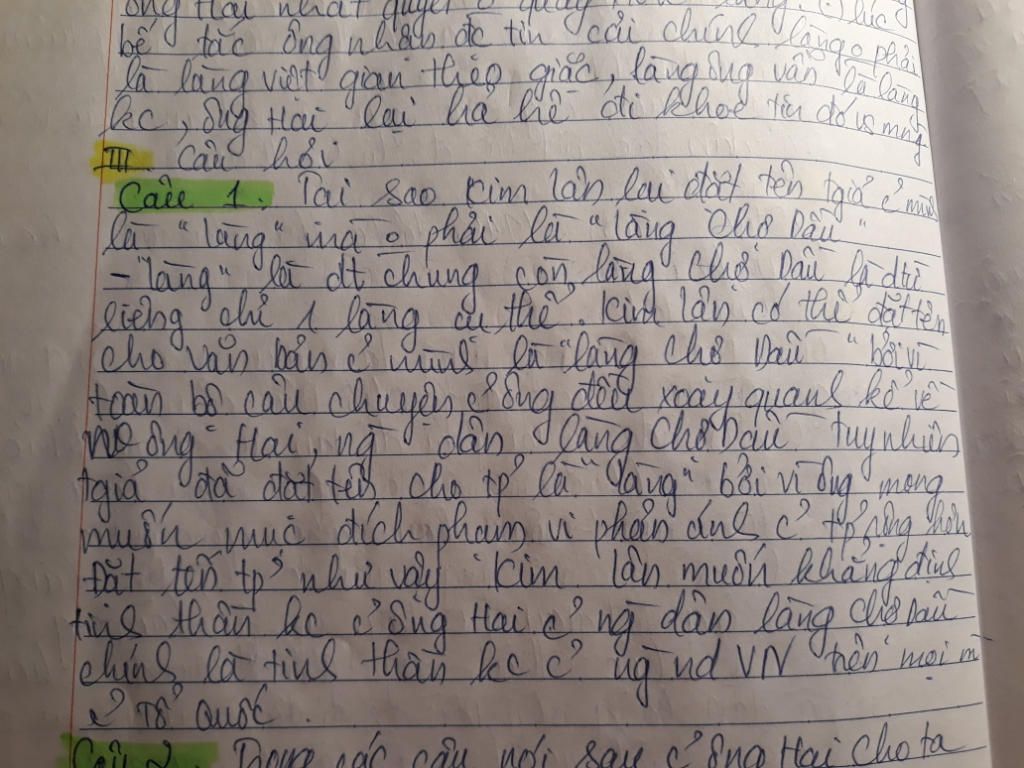 ông Hai nhất quyết o quay
bế tắc ông nhận đc tin cải chính làng o phải
là làng việt gian theo giặc, làng ông vẫn là làng
kc, ông Hai lại hả hê đi khoe tin đó vs mng
III. Câu hỏi
Câu 1. Tại sao Kim lân lại đặt tên tgiả ? mình
là "làng" mà o phải là "làng Chợ Dầu"
- "làng" là dt chung còn làng Chợ Dầu là dtừ
riêng chỉ 1 làng cụ thể. Kim lân có thể đặt tên
cho văn bản ? mình là "làng Chợ Dầu" bởi vì
toàn bộ câu chuyện ? ông đều xoay quanh kể về
nv ông Hai, ng dân làng Chợ Dầu tuy nhiên
tgiả đã đặt tên cho tp là "làng" bởi vì ông mong
muốn mục đích phạm vi phản ánh ? tp rộng hơn
Đặt tên tp như vậy Kim lân muốn khẳng định
tinh thần kc ? ông Hai ? ng dân làng Chợ Dầu
chính là tinh thần kc ? ng nd VN trên mọi m
? Tổ Quốc.
Câu 2. Trong các câu nói sau ? ông Hai cho ta